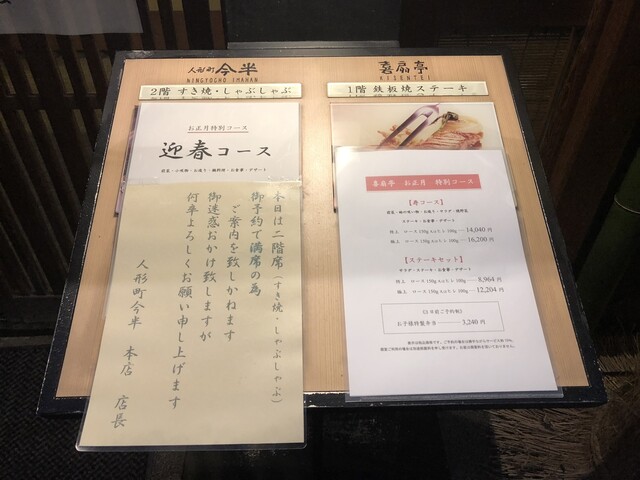 人形町 今半
NINGYOCHO IMAHAN
2階 すき焼・しゃぶしゃぶ
お正月特別コース
迎春コース
本日は二階席(すき焼・しゃぶしゃぶ)
御予約で満席の為
ご案内を致しかねます
御迷惑おかけ致しますが
何卒よろしくお願い申し上げます
人形町今半 本店 店長
喜扇亭
KISENTEI
1階 鉄板焼ステーキ
喜扇亭 お正月 特別コース
【寿コース】
特上 コース 14,040円
極上 コース 16,200円
【ステーキセット】
サラダ・ステーキ・お食事・デザート
特上 コース 8,964円
極上 コース 12,204円
お子様特製弁当 3,240円